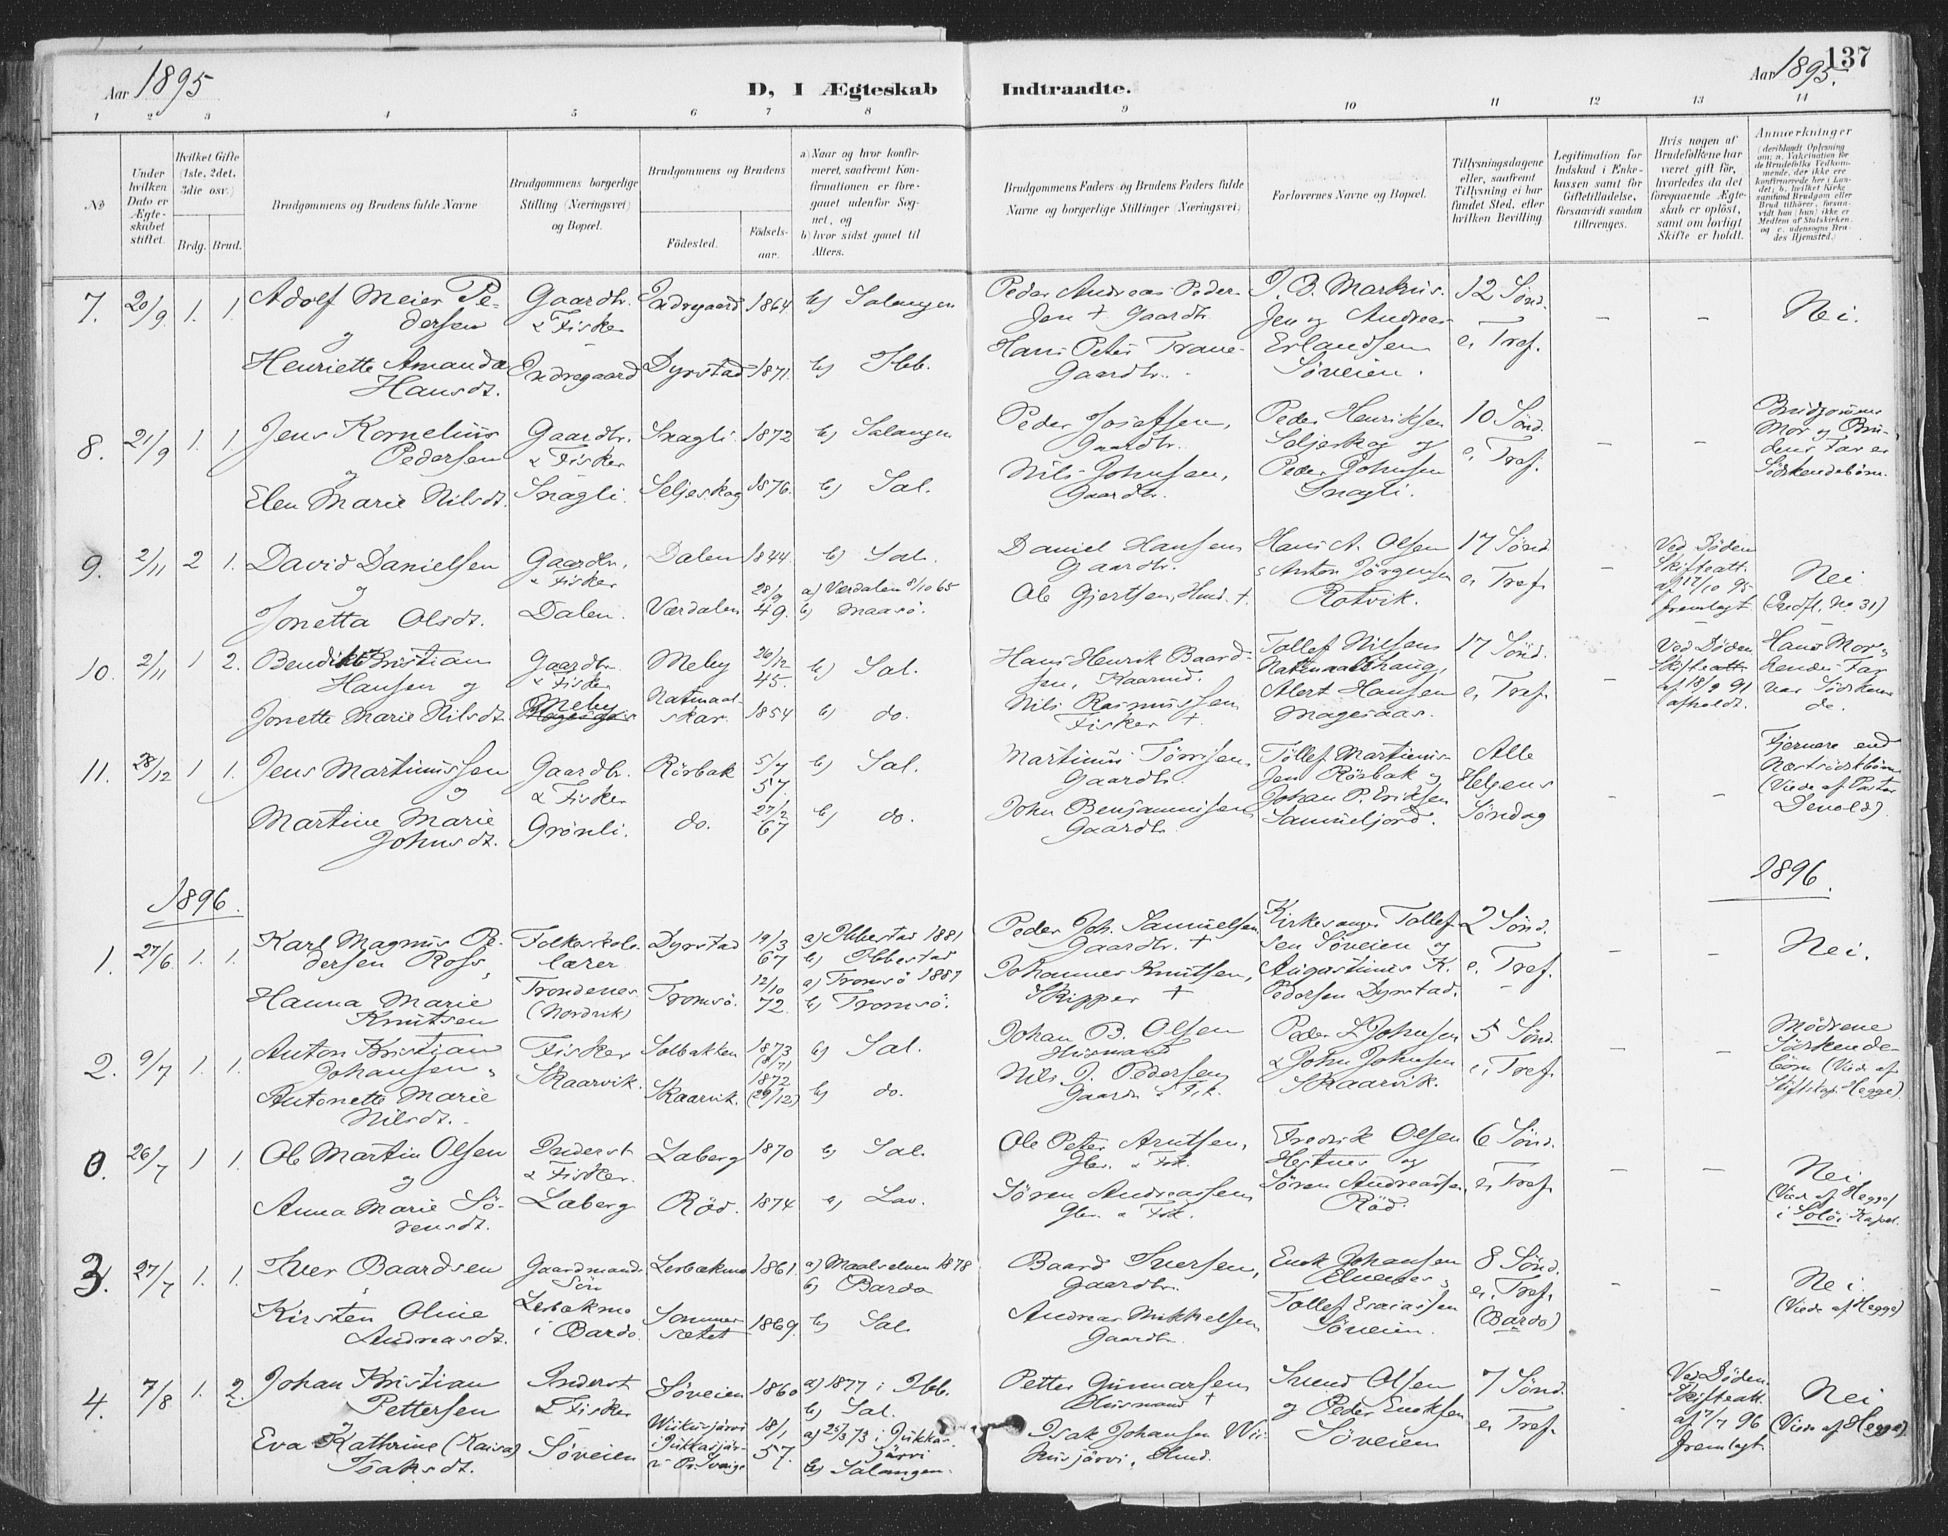 Aar 1895
D, I Ægteskab
Indtraadte.
Aar 1895.
137
1 2 3 4 5 6 7 8 9 10 11 12 13 14
No
Under hvilken Dato er Ægteskabet stiftet.
Hvilket Gifte (1ste, 2det, 3die osv.)
Brdg. Brud.
Brudgommens og Brudens fulde Navne
Brudgommens borgerlige Stilling (Næringsvei) og Bopæl.
Brudgommens og Brudens
Födested.
Födselsaar.
a) Naar og hvor konfirmeret, saafremt Konfirmationen er foregaaet udenfor Sognet, og
b) hvor sidst gaaet til Alters.
Brudgommens Faders og Brudens Faders fulde Navne og borgerlige Stillinger (Næringsvei)
Forlovernes Navne og Bopæl.
Tillysningsdagene eller, saafremt Tillysning ei har fundet Sted, efter hvilken Bevilling
Legitimation for Indskud i Enkekassen samt for Giftetilladelse, forsaavidt saadan tiltrænges.
Hvis nogen af Brudefolkene har været gift för, hvorledes da det foregaaende Ægteskab er oplöst, samt om lovligt Skifte er holdt.
Anmærkninger
7. 20/9 1. 1. Adolf Meier Pedersen
og
Henriette Amanda Hansdt.
Gaardbr. & Fisker
Indregaard
Indregaard 1864 b) Salangen
Dyrstad 1871. b) Ibb.
Peder Andreas Pedersen + Gaardbr.
Hans Peter Trane Gaardbr.
J. B. Markussen og Andreas Erlandsen Söveien.
12 Sönd. e. Tref.
– – Nei.
8. 21/9 1. 1. Jens Kornelius Pedersen
og
Elen Marie Nilsdt.
Gaardbr. & Fisker
Snagli.
Snagli. 1872 b) Salangen
Seljeskog 1876. b) Sal.
Peder Josefsen, Gaardbr.
Nils Johnsen, Gaardbr.
Peder Henriksen Seljeskog og Peder Johnsen Snagli.
10 Sönd. e. Tref.
– – Brudgommens Mor og Brudens Far er Söskendebörn.
9. 2/11 2 1. David Danielsen
og
Jonetta Olsdt.
Gaardbr. & Fisker
Dalen.
Dalen 1844 b) Sal.
Værdalen 28/9 49. a) Værdalen 8/10 65 b) Maasö.
Daniel Hansen Gaardbr.
Ole Gjertsen, Husm. +
Hans A. Olsen & Anton Jörgensen Rotvik.
17 Sönd e. Tref.
–
Ved Döden Skifteatt. af 17/10 95 fremlagt.
Nei (Indfl. No 31)
10. 2/11 1 2. Bendikt Kristian Hansen og
Jonette Marie Nilsdt.
Gaardbr. & Fisker
Meby
Meby 26/12 45. b) Sal.
1854 b) do.
Hans Henrik Baardsen, Kaarmd.
Nils Rasmussen Fisker +
Tollef Nilsen
Alert Hansen Magesaas.
17 Sönd. e. Tref.
–
Ved Döden Skifteatt. af 18/9 91 afholdt.
Hans Mor, hendes Far var Söskende.
11. 28/12 1 1. Jens Martinussen
og
Martine Marie Johnsdt.
Gaardbr. & Fisker
Grönli.
Rörbak 5/7 57. b) Sal.
do. 27/2 67 b) do.
Martinus Törrisen Gaardbr.
John Benjaminsen Gaardbr.
Tollef Martinussen Rörbak og Johan P. Eriksen
Alle Helgens Söndag
– – Fjernere end Næstsöskdbörn (Viede af Pastor Devold).
1896.
1896.
1. 27/6 1. 1. Karl Magnus Pedersen Ross,
Hanna Marie Knutsen
Folkeskolelærer
Trondenes (Nordvik)
Dyrstad 19/3 67 a) Ibbestad 1881 b) Ibbestad
Tromsö. 12/10 72. a) Tromsö 1887 b) Tromsö.
Peder Joh. Samuelsen Gaardbr. +
Johannes Knutsen, Skipper +
Kirkesanger Tollefsen Söveien og Augustinus K. Pedersen Dyrstad.
2 Sönd. e. Tref.
– – Nei.
2. 9/7 1. 1. Anton Kristian Johansen,
Antonette Marie Nilsdt.
Fisker
Skaarvik.
Solbakken 1873 b) Sal.
Skaarvik. 1872 (29/12) b) do.
Johan B. Olsen Husmand
Nils J. Pedersen
Peder L Johnsen & John Johnsen Skaarvik.
5 Sönd. e. Tref.
– – Mödrene Söskendebörn (Viede af Stiftskap. Hegge).
0. 26/7 1 1. Ole Martin Olsen
og
Anna Marie Sörensdt.
Inderst & Fisker.
Laberg
Laberg 1870 b) Sal.
Röd. 1874 b) Lav.
Ole Peter Arntsen, Gbr. & Fisk.
Sören Andreassen Gbr. & Fisk.
Fredrik Olsen Hestnes og Sören Andreassen, Röd.
6 Sönd. e. Tref.
– – Nei (Viede af Hegge i Solöi Kapel.
3. 27/7 1. 1. Iver Baardsen
Kirsten Oline Andreasdt.
Gaardmands Sön
Lerbakmo i Bardo.
Lerbakmo 1861. a) Maalselven 1878 b) Bardo
Sommersætet 1869. b) Sal.
Baard Iversen, Gaardbr.
Andreas Mikkelsen Gaardbr.
Enok Johansen Elvenes,
Tollef Esaiassen Söveien.
8 Sönd. e. Tref. (Bardo)
– – Nei (Viede af Hegge)
4. 7/8 1. 2. Johan Kristian Pettersen
og
Eva Kathrine (Kaisa) Isaksdt.
Inderst & Fisker
Söveien
Söveien 1860 a) 1877 i Ibb. b) Sal.
Wiikusjärvi i Jukkasjärvi Pr. Sverige 18/1 57. a) 25/3 73 i Jukkasjärvi b) Salangen.
Petter Gunnarsen Husmand +
Isak Johansen Wiikusjärvi, Husmd.
Svend Olsen og Peder Enoksen Söveien
7 Sönd. e. Tref.
–
Ved Döden. Skifteatt. af 7/7 96 fremlagt.
Nei (Viede af Hegge)